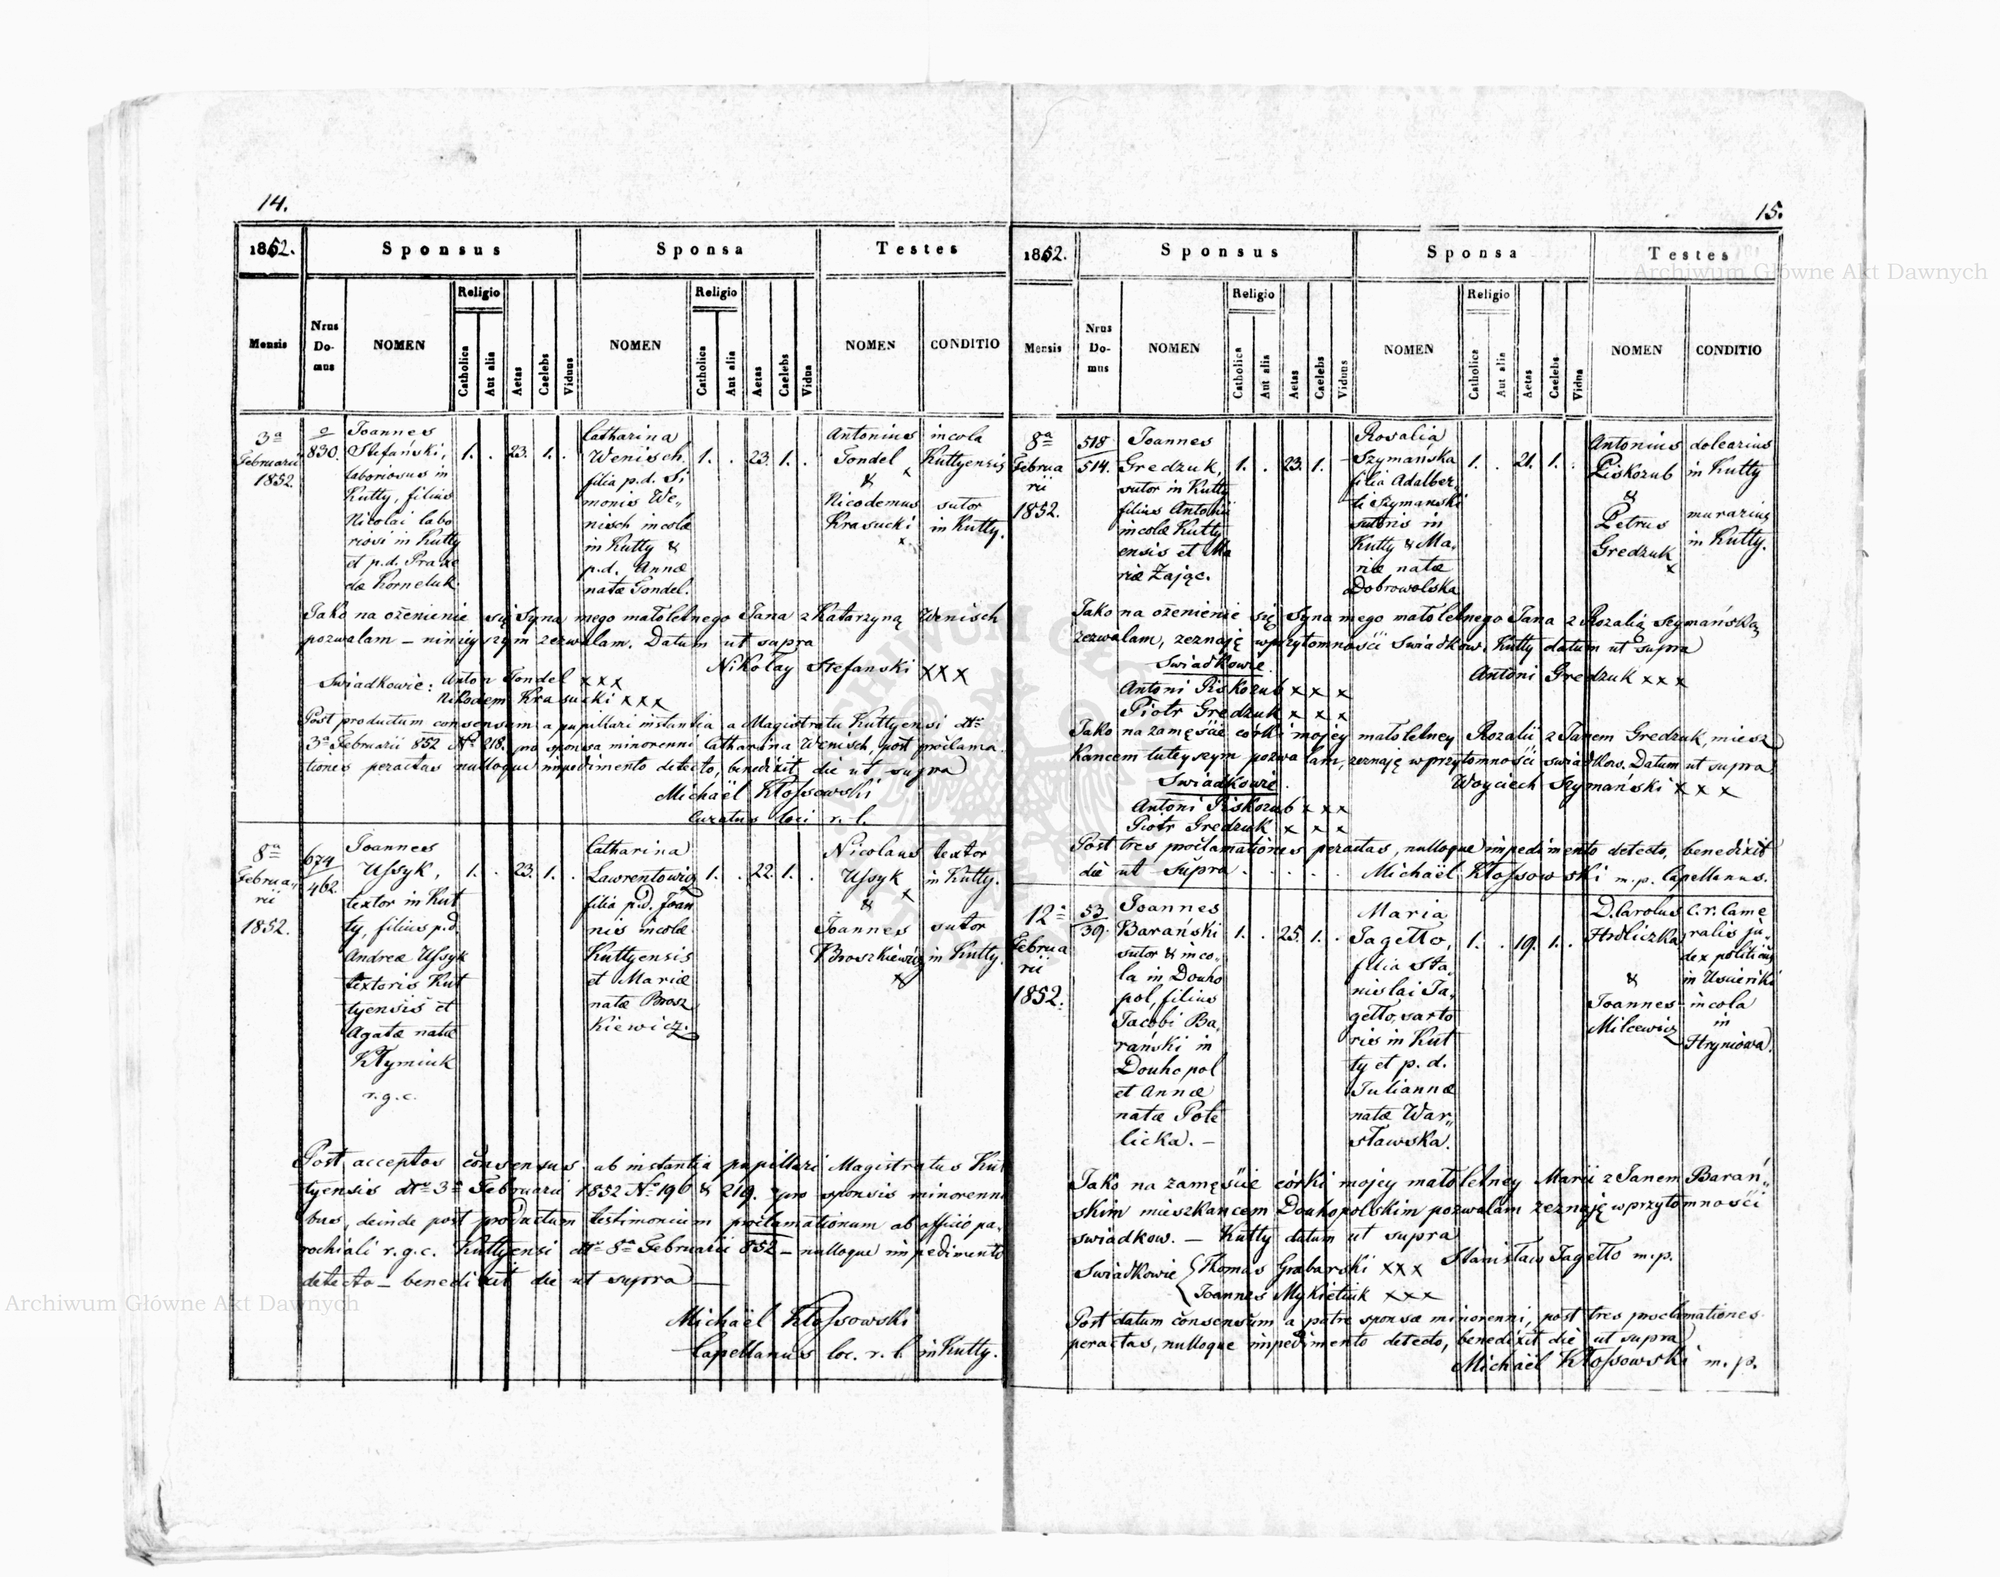 14.
1852. Sponsus Sponsa Testes
Mensis Nrus Do- mus NOMEN Religio Catholica Aut alia Aetas Caelebs Viduus NOMEN Religio Catholica Aut alia Aetas Caelebs Vidua NOMEN CONDITIO
3a Februarii 1852.
830.
Joannes
Stefański,
laboriosus in
Kutty, filius
Nicolai labo
riosi in Kutty
et p.d. Praxe
dæ Korneluk.
1. . 23. 1. .
Catharina
Wenisch
filia p.d. Si
monis We„
nisch incolæ
in Kutty &
p.d. Annæ
natæ Tondel.
1. . 23. 1. .
Antonius
Tondel
x
&
Nicodemus
Krasucki
x.
incola
Kuttyensis
sutor
in Kutty.
Jako na ożenienie się Syna mego małoletnego Jana z Katarzyną Wenisch
pozwalam – niniejszym zezwalam. Datum ut supra
Nikołay Stefanski XXX
Swiadkowie: Anton Tondel xxx
Nikodem Krasucki xxx
Post productum consensum a pupillari instantia a Magistratu Kuttyensi dtto
3a Februarii 852 No 218. pro sponsa minorenni Catharina Wenisch, post proclama
tiones peractas nulloque impedimento detecto, benedixit die ut supra
Michaël Kłossowski
Curatus loci r. l.
8a
Februa„
rii
1852.
674
462.
Joannes
Ussyk,
textor in Kut
ty, filius p.d.
Andreæ Ussyk
textoris Kut
tyensis et
Agatæ natæ
Kłymiuk
r.g.c.
1. . 23. 1. .
Catharina
Lawrentowicz
filia p.d. Joan
nis incolæ
Kuttyensis
et Mariæ
natæ Brosz
kiewicz.
1. . 22. 1. .
Nicolaus
Ussyk
x
&
Joannes
Broszkiewicz
x
textor
in Kutty.
sutor
in Kutty.
Post acceptos consensus ab instantia pupillari Magistratus Kut
tyensis dtto 3a Februarii 1852 No 196 & 219. pro sponsis minorenni
bus, deinde post productum testimonium proclamationum ab officio pa„
rochiali r.g.c. Kuttyensi dtto 8a Februarii 852 – nulloque impedimento
detecto – benedixit die ut supra
Michaël Kłossowski
Capellanus loc. r. l. in Kutty.
15.
1852. Sponsus Sponsa Testes
Mensis Nrus Do- mus NOMEN Religio Catholica Aut alia Aetas Caelebs Viduus NOMEN Religio Catholica Aut alia Aetas Caelebs Vidua NOMEN CONDITIO
8a
Februa
rii
1852.
518
514.
Joannes
Gredzuk,
sutor in Kutty
filius Antonii
incolæ Kutty
ensis et Ma
riæ Zając.
1. . 23. 1. .
Rosalia
Szymańska
filia Adalber„
ti Szymanski
sutoris in
Kutty & Ma„
riæ natæ
Dobrowolska
1. . 21. 1. .
Antonius
Piskozub
&
Petrus
Gredzuk
x
dolearius
in Kutty
murarius
in Kutty.
Jako na ożenienie się Syna mego małoletnego Jana z Rozalią Szymańską
zezwalam, zeznaję w przytomności Swiadków. Kutty datum ut supra
Swiadkowie.
Antoni Gredzuk xxx
Antoni Piskozub x x x
Piotr Gredzuk x x x
Jako na zamęście córki mojey małoletney Rozalii z Janem Gredzuk, miesz
kancem tuteyszym pozwalam, zeznaję w przytomności swiadków. Datum ut supra
Swiadkowie.
Woyciech Szymański x x x
Antoni Piskozub x x x
Piotr Gredzuk x x x
Post tres proclamationes peractas, nulloque impedimento detecto, benedixit
die ut supra . . . . . Michaël Kłossowski m.p. Capellanus.
12a
Februa
rii
1852.
53
39.
Joannes
Barański
sutor & inco„
la in Douho
pol, filius
Jacobi Ba„
rański in
Douhopol
et Annæ
natæ Pote
licka. –
1. . 25. 1. .
Maria
Jagetto,
filia Sta„
nislai Ja„
getto, sarto
ris in Kut
ty et p. d.
Juliannæ
natæ War„
sławska.
1. . 19. 1. .
D. Carolus
Hrdliczka
&
Joannes
Milcewicz
C.r. Came
ralis ju„
dex politicus
in Uscieriki
incola
in
Hryniowa.
Jako na zamęście córki mojey małoletney Marii z Janem Barań„
skim mieszkancem Douhopolskim pozwalam zeznaję w przytomności
swiadkow. – Kutty datum ut supra
Stanisław Jagełło m.p.
Swiadkowie Thomas Grabarski xxx
Joannes Mykietiuk xxx
Post datum consensum a patre sponsæ minorenni, post tres proclamationes
peractas, nulloque impedimento detecto, benedixit die ut supra
Michaël Kłossowski m. p.
Archiwum Główne Akt Dawnych
Archiwum Główne Akt Dawnych